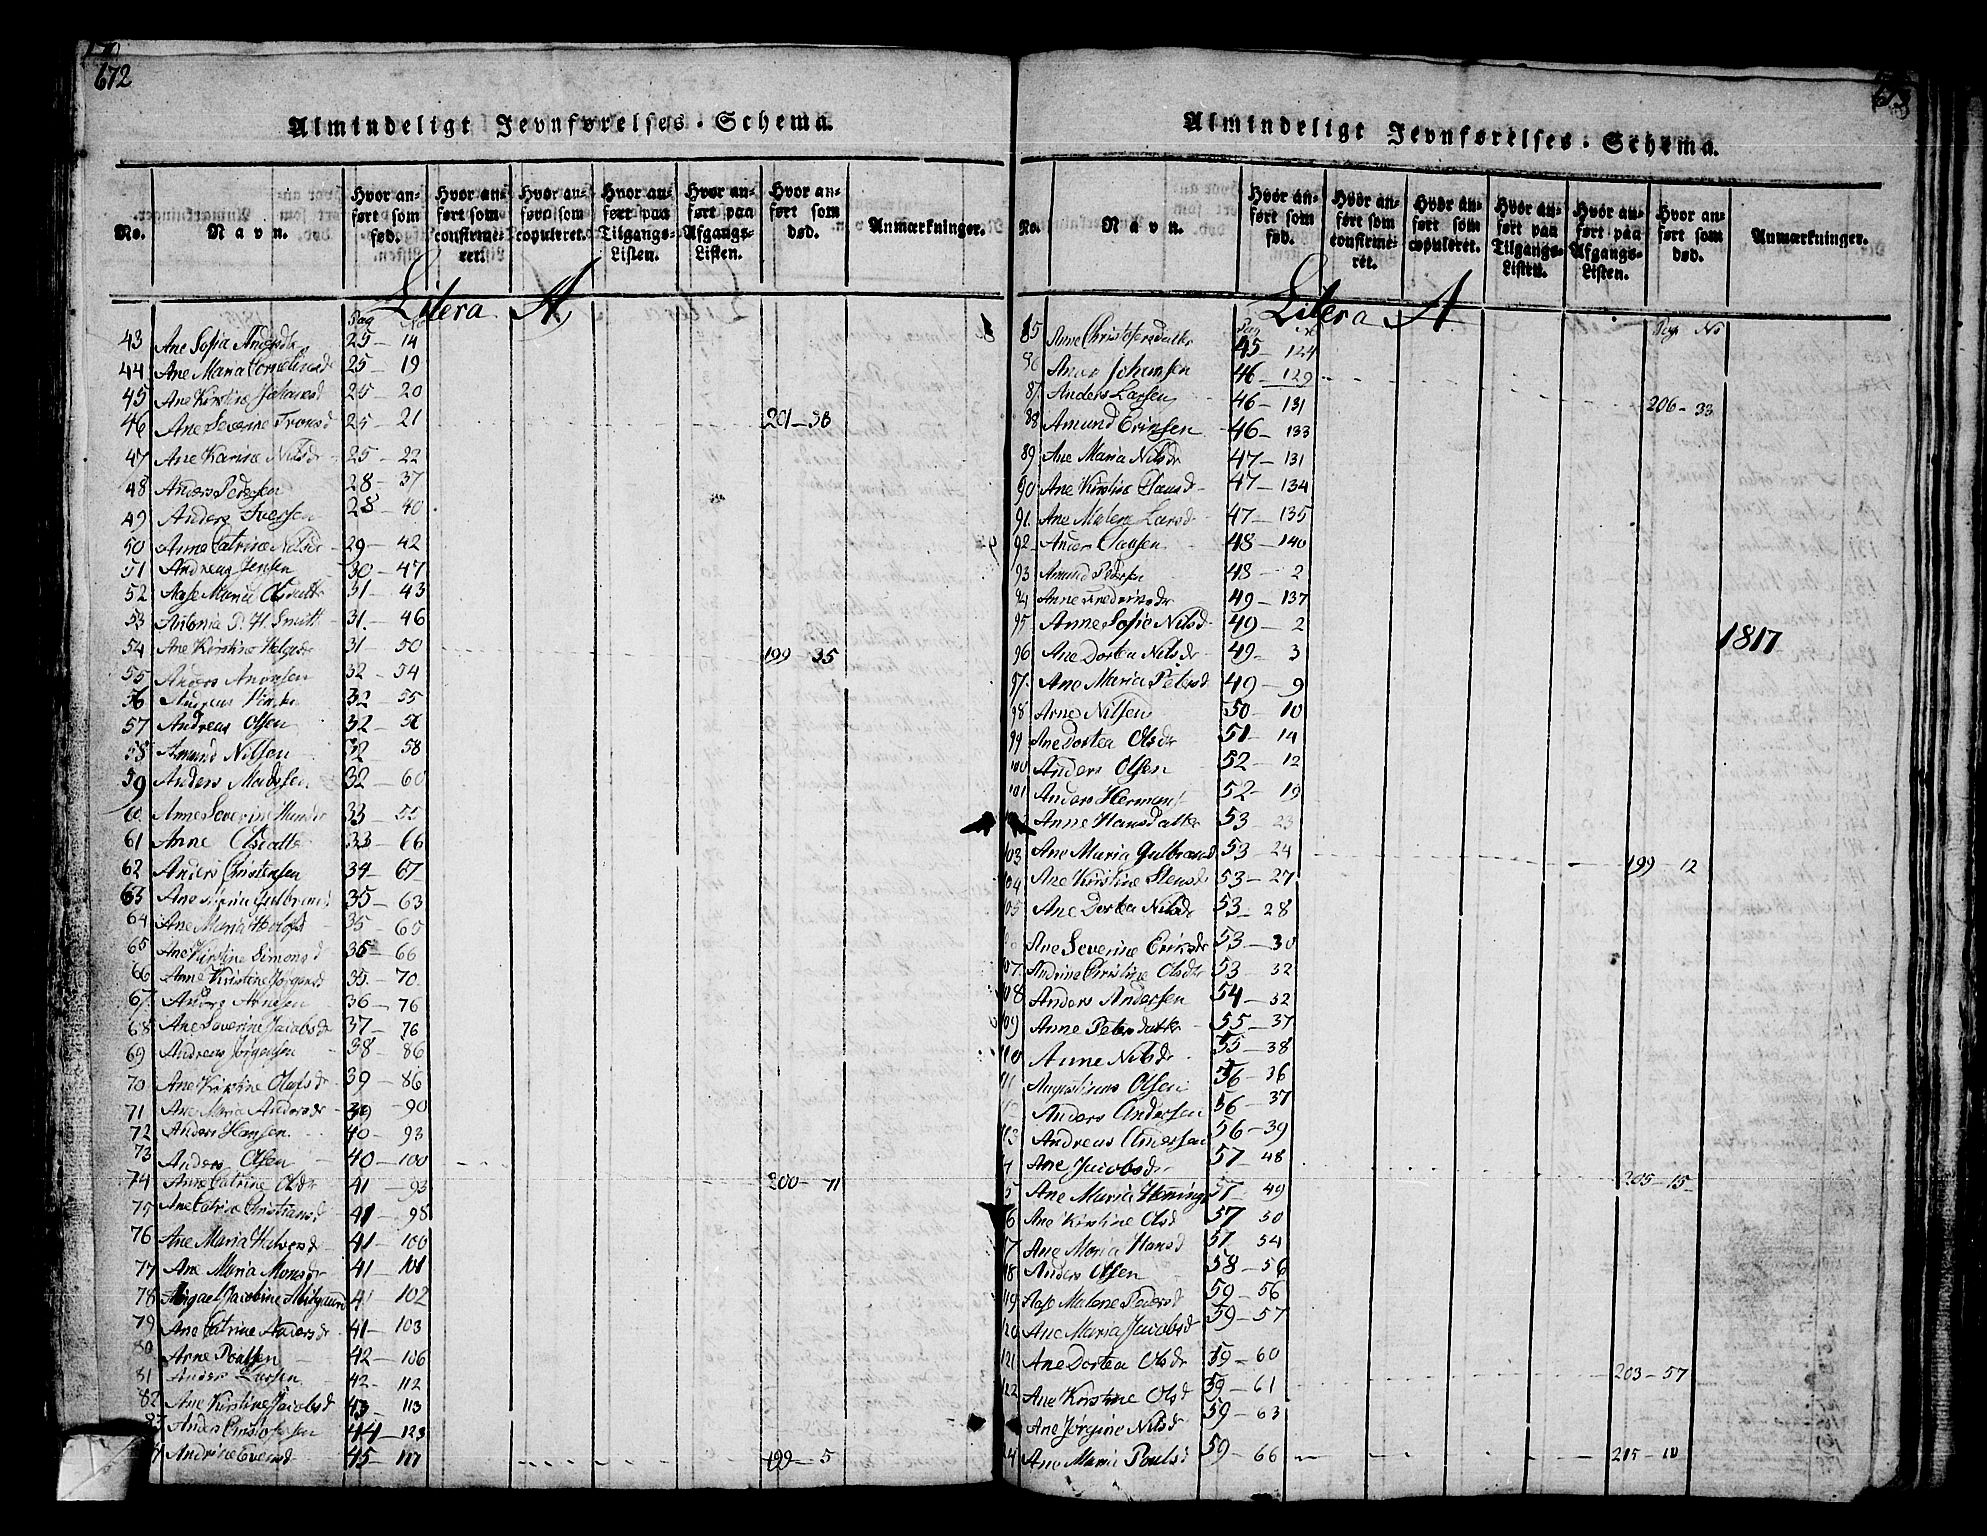 672
Almindeligt Jevnførelses-Schema.
No. Navn. Hvor anført som fød. Hvor anført som confirmeret. Hvor anført som copuleret. Hvor anført paa Tilgangs-Listen. Hvor anført paa Afgangs-Listen. Hvor anført som død. Anmærkninger.
Litera A
Pag No
43 Ane Sofia Andersdr 25 - 14
44 Ane Maria Corneliusd 25 - 19
45 Ane Kirstine Johansd 25 - 20
46 Ane Severine Tronsd 25 - 21 201 - 38
47 Ane Karine Nilsdr 25 - 22
48 Anders Pedersen 28 - 37
49 Anders Iversen 28 - 40
50 Anne Catrine Nilsdr 29 - 42
51 Andreas Jensen 30 - 47
52 Aase Maria Olsdatter 31 - 43
53 Antonia P. H. Smith 31 - 46
54 Ane Kirstine Helgedr 31 - 50 199 - 35
55 Anders Andersen 32 - 54
56 Andreas 32 - 55
57 Andreas Olsen 32 - 56
58 Amund Nilsen 32 58
59 Anders Madssen 32 - 60
60 Anne Severine 33 - 55
61 Anne Olsdatter 33 - 66
62 Anders Christensen 34 - 67
63 Ane Maria Gulbrands 35 - 63
64 Ane Maria 35 - 65
65 Ane Kirstine Simonsd 35 - 66
66 Anne Kirstine Jørgensd 35 - 70
67 Anders 36 - 76
68 Ane Severine Jacobsdr 37 - 76
69 Andreas Jørgensen 38 - 86
70 Ane Kirstine Olafsdr 39 - 86
71 Ane Maria Andersdr 39 - 90
72 Anders Hansen 40 - 93
73 Anders Olsen 40 - 100
74 Anne Catrine Olsdr 41 - 93 200 - 71
75 Ane Catrine Christiansd 41 - 98
76 Ane Maria Halvorsd 41 - 100
77 Ane Maria Monsdr 41 - 101
78 Abigael Jacobine 41 102
79 Ane Catrine Andersdr 41 - 103
80 Arne Poulsen 42 - 106
81 Anders Larsen 42 - 112
82 Ane Kirstine Jacobsd 43 - 113
83 Anders Christofersen 44 - 123
Andrine Evensd 45 - 117 199 - 5
Almindeligt Jevnførelses-Schema.
No. Navn. Hvor anført som fød. Hvor anført som confirmeret. Hvor anført som copuleret. Hvor anført paa Tilgangs-Listen. Hvor anført paa Afgangs-Listen. Hvor anført som død. Anmærkninger.
Litera A
Pag No Pag No
85 Anne Christofersdatter 45 - 124
86 Johansen 46 - 129
87 Anders Larsen 46 - 131 206 - 33
88 Amund Erichsen 46 - 133
89 Ane Maria Nilsdr 47 - 131
90 Ane Kirstine Clausd 47 - 134
91 Ane Malene Larsd 47 - 135
92 Anders Clausen 48 - 140
93 Amund Pedersen 48 - 2
94 Anne Fredriksdr 49 - 137
95 Anne Sofie Nilsd 49 - 2
96 Ane Dortea Nilsdr 49 - 3 1817
97 Ane Maria Petersd 49 - 9
98 Arne Nilsen 50 - 10
99 Ane Dortea Olsdr 51 - 14
100 Anders Olsen 52 - 12
101 Anders Hermans 52 - 19
Anne Hansdatter 53 23
103 Ane Maria Gulbransd 53 - 24 199 - 12
104 Ane Kirstine Stensdr 53 - 27
105 Ane Dortea Nilsdr 53 - 28
Ane Severine Ericsdr 53 - 30
107 Andrine Christine Olsdtr 53 - 32
108 Anders Andersen 54 - 32
109 Anne Petersdatter 55 - 37
110 Anne Nilsdr 55 - 38
Augustinus Olsen 56 - 36
Anders Andersen 56 - 37
113 Andreas Andersen 56 - 39
Ane Jacobsdr 57 - 48 205 - 15
5 Ane Maria Hennings 57 - 49
6 Ane Kirstine Olsd 57 50
17 Ane Maria Hansd 57 54
18 Anders Olsen 58 - 56
119 Aase Malene Pedersd 59 - 56
120 Ane Maria Jacobsd 59 - 57
121 Ane Dortea Olsdr 59 - 60 203 - 57
122 Ane Kirstine Olsd 59 - 61
Ane Jørgine Nilsdr 59 - 63
24 Ane Maria Poulsd 59 - 66 215 - 10